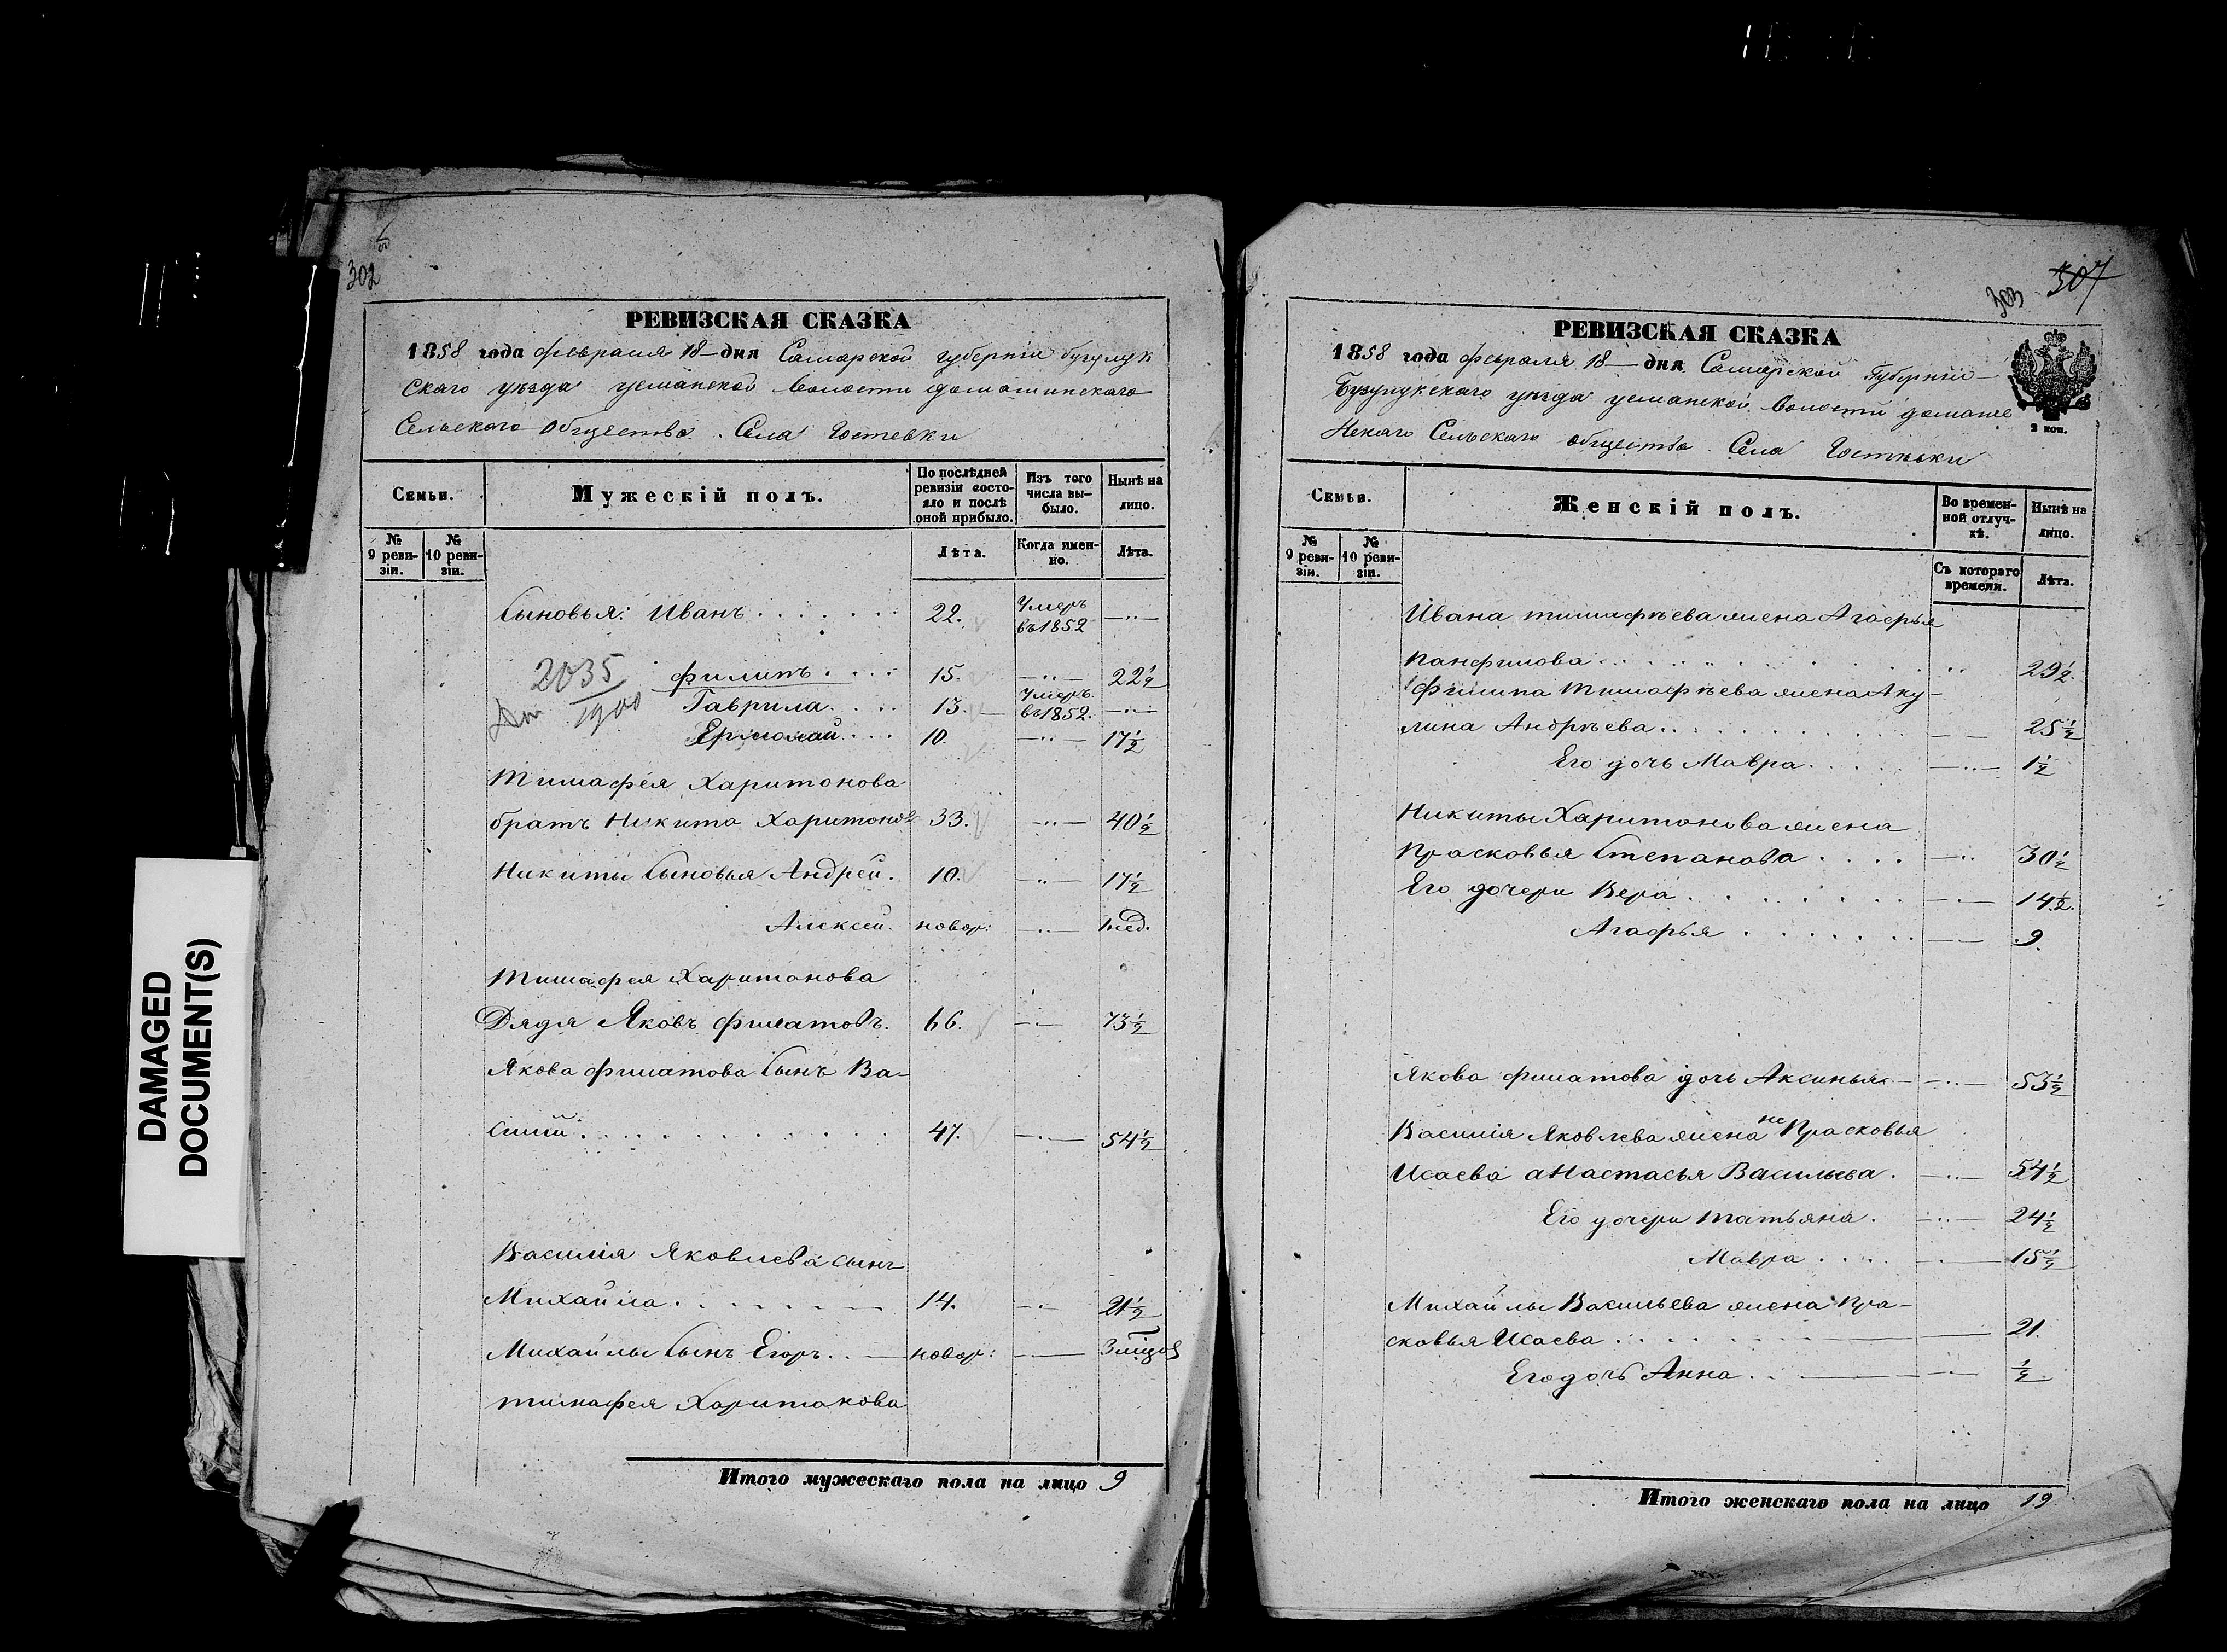 302
РЕВИЗСКАЯ СКАЗКА
1858 года февраля 18 дня Самарской губерніи бузулук
скаго уѣзда усманской волости домашинскаго
Сельскаго Общества. Села Гостевки
Семьи.
Мужескій полъ.
По послѣдней ревизіи состояло и послѣ оной прибыло.
Изъ того числа вы-было.
Нынѣ на лицо.
№ 9 реви-зіи.
№ 10 реви-зіи.
Лѣта.
Когда имен-но.
Лѣта.
Сыновья: Иванъ . . . . . 22. Умеръ въ 1852 —„—
2035 филипъ. . . . 15. —„— 22½
1900 Гаврила. . . . 13. Умеръ въ 1852. —„—
Ермолай. . . . 10. —„— 17½
Тимафея Харитонова
братъ Никита Харитоновъ 33. —„— 40½
Никиты Сыновья Андрей. 10. —„— 17½
Алексей. новор: —„— 1 нед.
Тимафея Харитонова
Дядя Яковъ филатовъ. 66. —„— 73½
Якова филатова Сынъ Ва-
силій. . . . . . . . . 47. —„— 54½
Василія Яковлева сынъ
Михайла. . . . . . 14. —„— 21½
Михайлы Сынъ Егоръ. . — новор: —„—
тимафея Харитонова
Итого мужескаго пола на лицо 9
303 307
РЕВИЗСКАЯ СКАЗКА
1858 года февраля 18 — дня Самарской Губерніи
Бузулукскаго уѣзда усманской волости домаши
нскаго Сельскаго общества Села Гостѣвки
2 коп.
Семьи.
Женскій полъ.
Во времен-ной отлуч-кѣ.
Нынѣ на лицо.
№ 9 реви-зіи.
№ 10 реви-зіи.
Съ котораго времени.
Лѣта.
Ивана тимафѣева жена Агафья
Панфилова . . . . . . . . 29½
Филипа Тимафѣева жена Аку-
лина Андрѣева. . . . . . — — 25½
Его дочь Мавра. . . . —„— 1½
Никиты Харитонова жена
Прасковья Степанова . . . . —„— 30½
Его дочери Вера . . . . . . —„— 14½
Агафья . . . . . . — — 9.
Якова филатова дочь Аксинья. — —„— 53½
Василія Яковлева жена не Прасковья
Исаева анастасья Васильева. —„— 54½
Его дочери татьяна. —„— 24½
Мавра . . . . —„— 15½
Михайлы Васильева жена Пра-
сковья Исаева . . . . . — 21.
Его дочь Анна. . — —„— ½
Итого женскаго пола на лицо 19
DAMAGED
DOCUMENT(S)